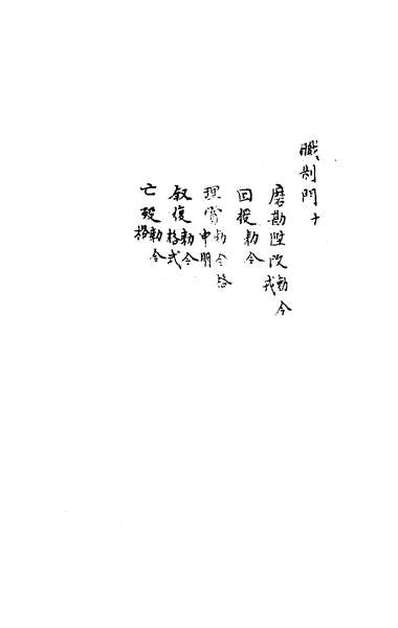 職制門十
磨勘陞改勅令式
回授勅令
理賞勅令格申明
叙復勅令格式
亡殁勅令格